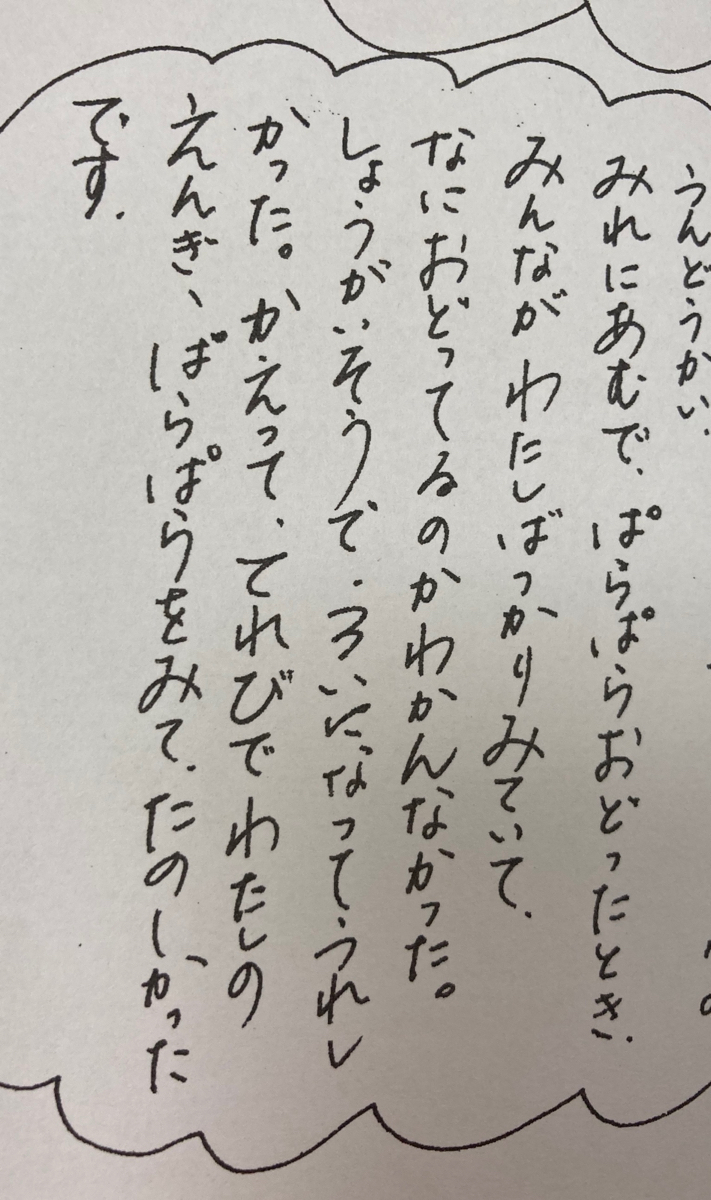 うんどうかい、
みれにあむで、ぱらぱらおどったとき、
みんながわたしばっかりみていて、
なにおどってるのかわかんなかった。
しょうがいそうで、3いになって、うれし
かった。かえって、てれびでわたしの
えんぎ、ぱらぱらをみて、たのしかった
です、